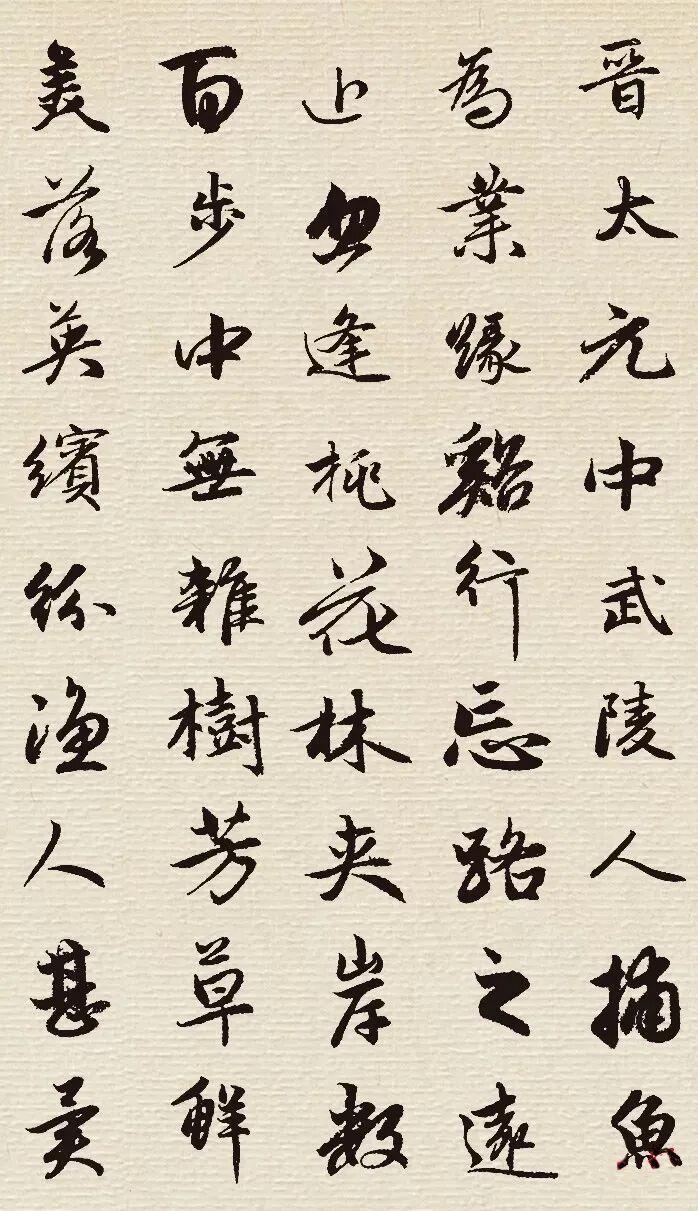 晋太元中武陵人捕魚
為業緣谿行忘路之遠
近忽逢桃花林夾岸數
百步中無雜樹芳草鮮
美落英繽紛漁人甚異